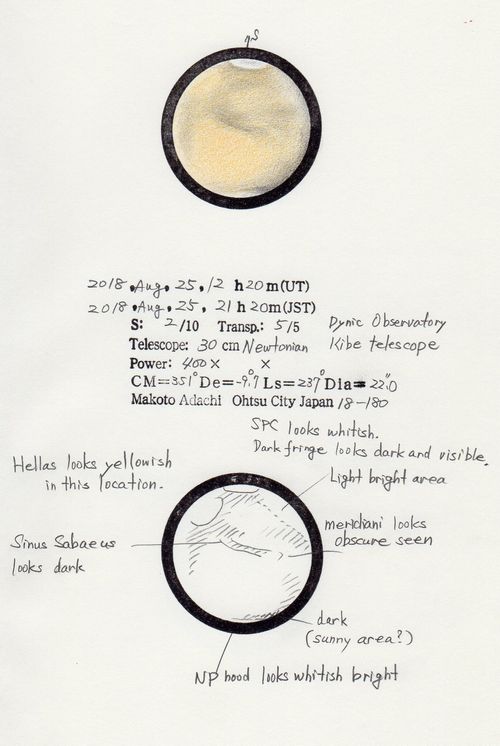 S
2018, Aug, 25, 12 h 20 m (UT)
2018, Aug, 25, 21 h 20 m (JST)
S: 2/10 Transp.: 5/5 Dynic Observatory
Telescope: 30 cm Newtonian Kibe telescope
Power: 400× ×
CM=351° De=-9.°7 Ls=237° Dia=22."0
Makoto Adachi Ohtsu City Japan 18-180
SPC looks whitish.
Dark fringe looks dark and visible.
Hellas looks yellowish
in this location.
Light bright area
meridiani looks
obscure seen
Sinus Sabaeus
looks dark
dark
(sunny area?)
NP hood looks whitish bright